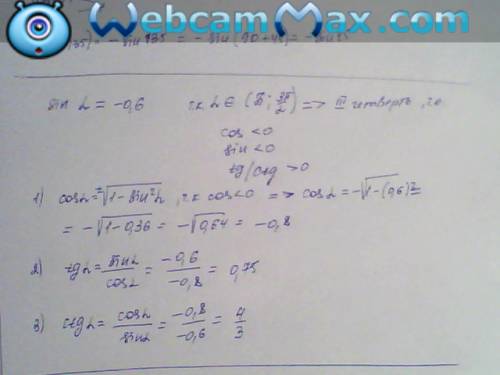 WebcamMax.com
135) = - sin 135 = - sin (90+45) =
sin α = -0,6 т.к α ∈ (π; 3π/2) => III четверть, т.е.
cos <0
sin <0
tg/ctg >0
1) cosα = ±√1-sin²α, т.к cos<0 => cosα = -√1-(0,6)² =
= -√1-0,36 = -√0,64 = -0,8
2) tgα = sinα/cosα = -0,6/-0,8 = 0,75
3) ctgα = cosα/sinα = -0,8/-0,6 = 4/3